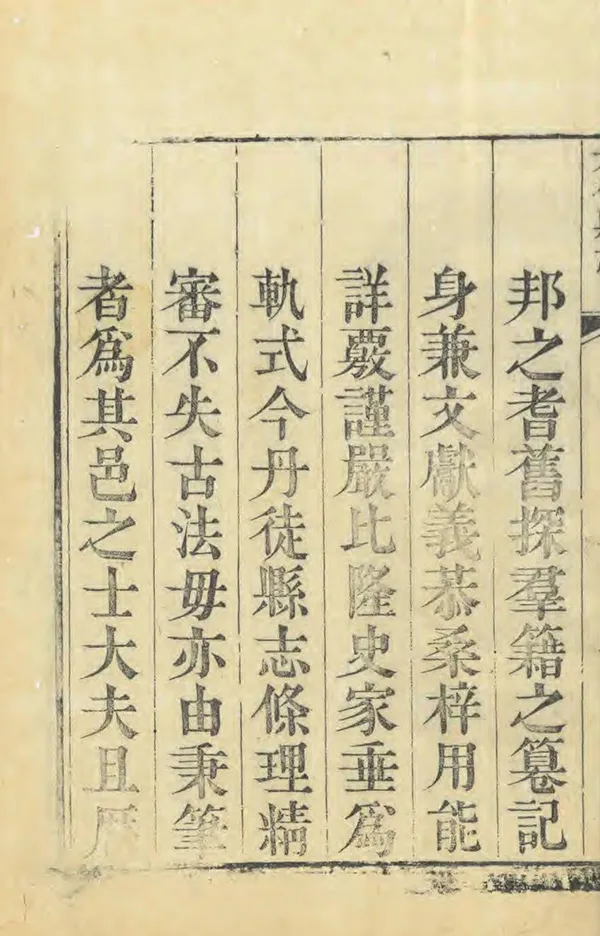 邦之耆舊探羣籍之篹記
身兼文獻義恭桑梓用能
詳覈謹嚴比隆史家垂爲
軌式今丹徒縣志條理精
審不失古法毋亦由秉筆
者爲其邑之士大夫且